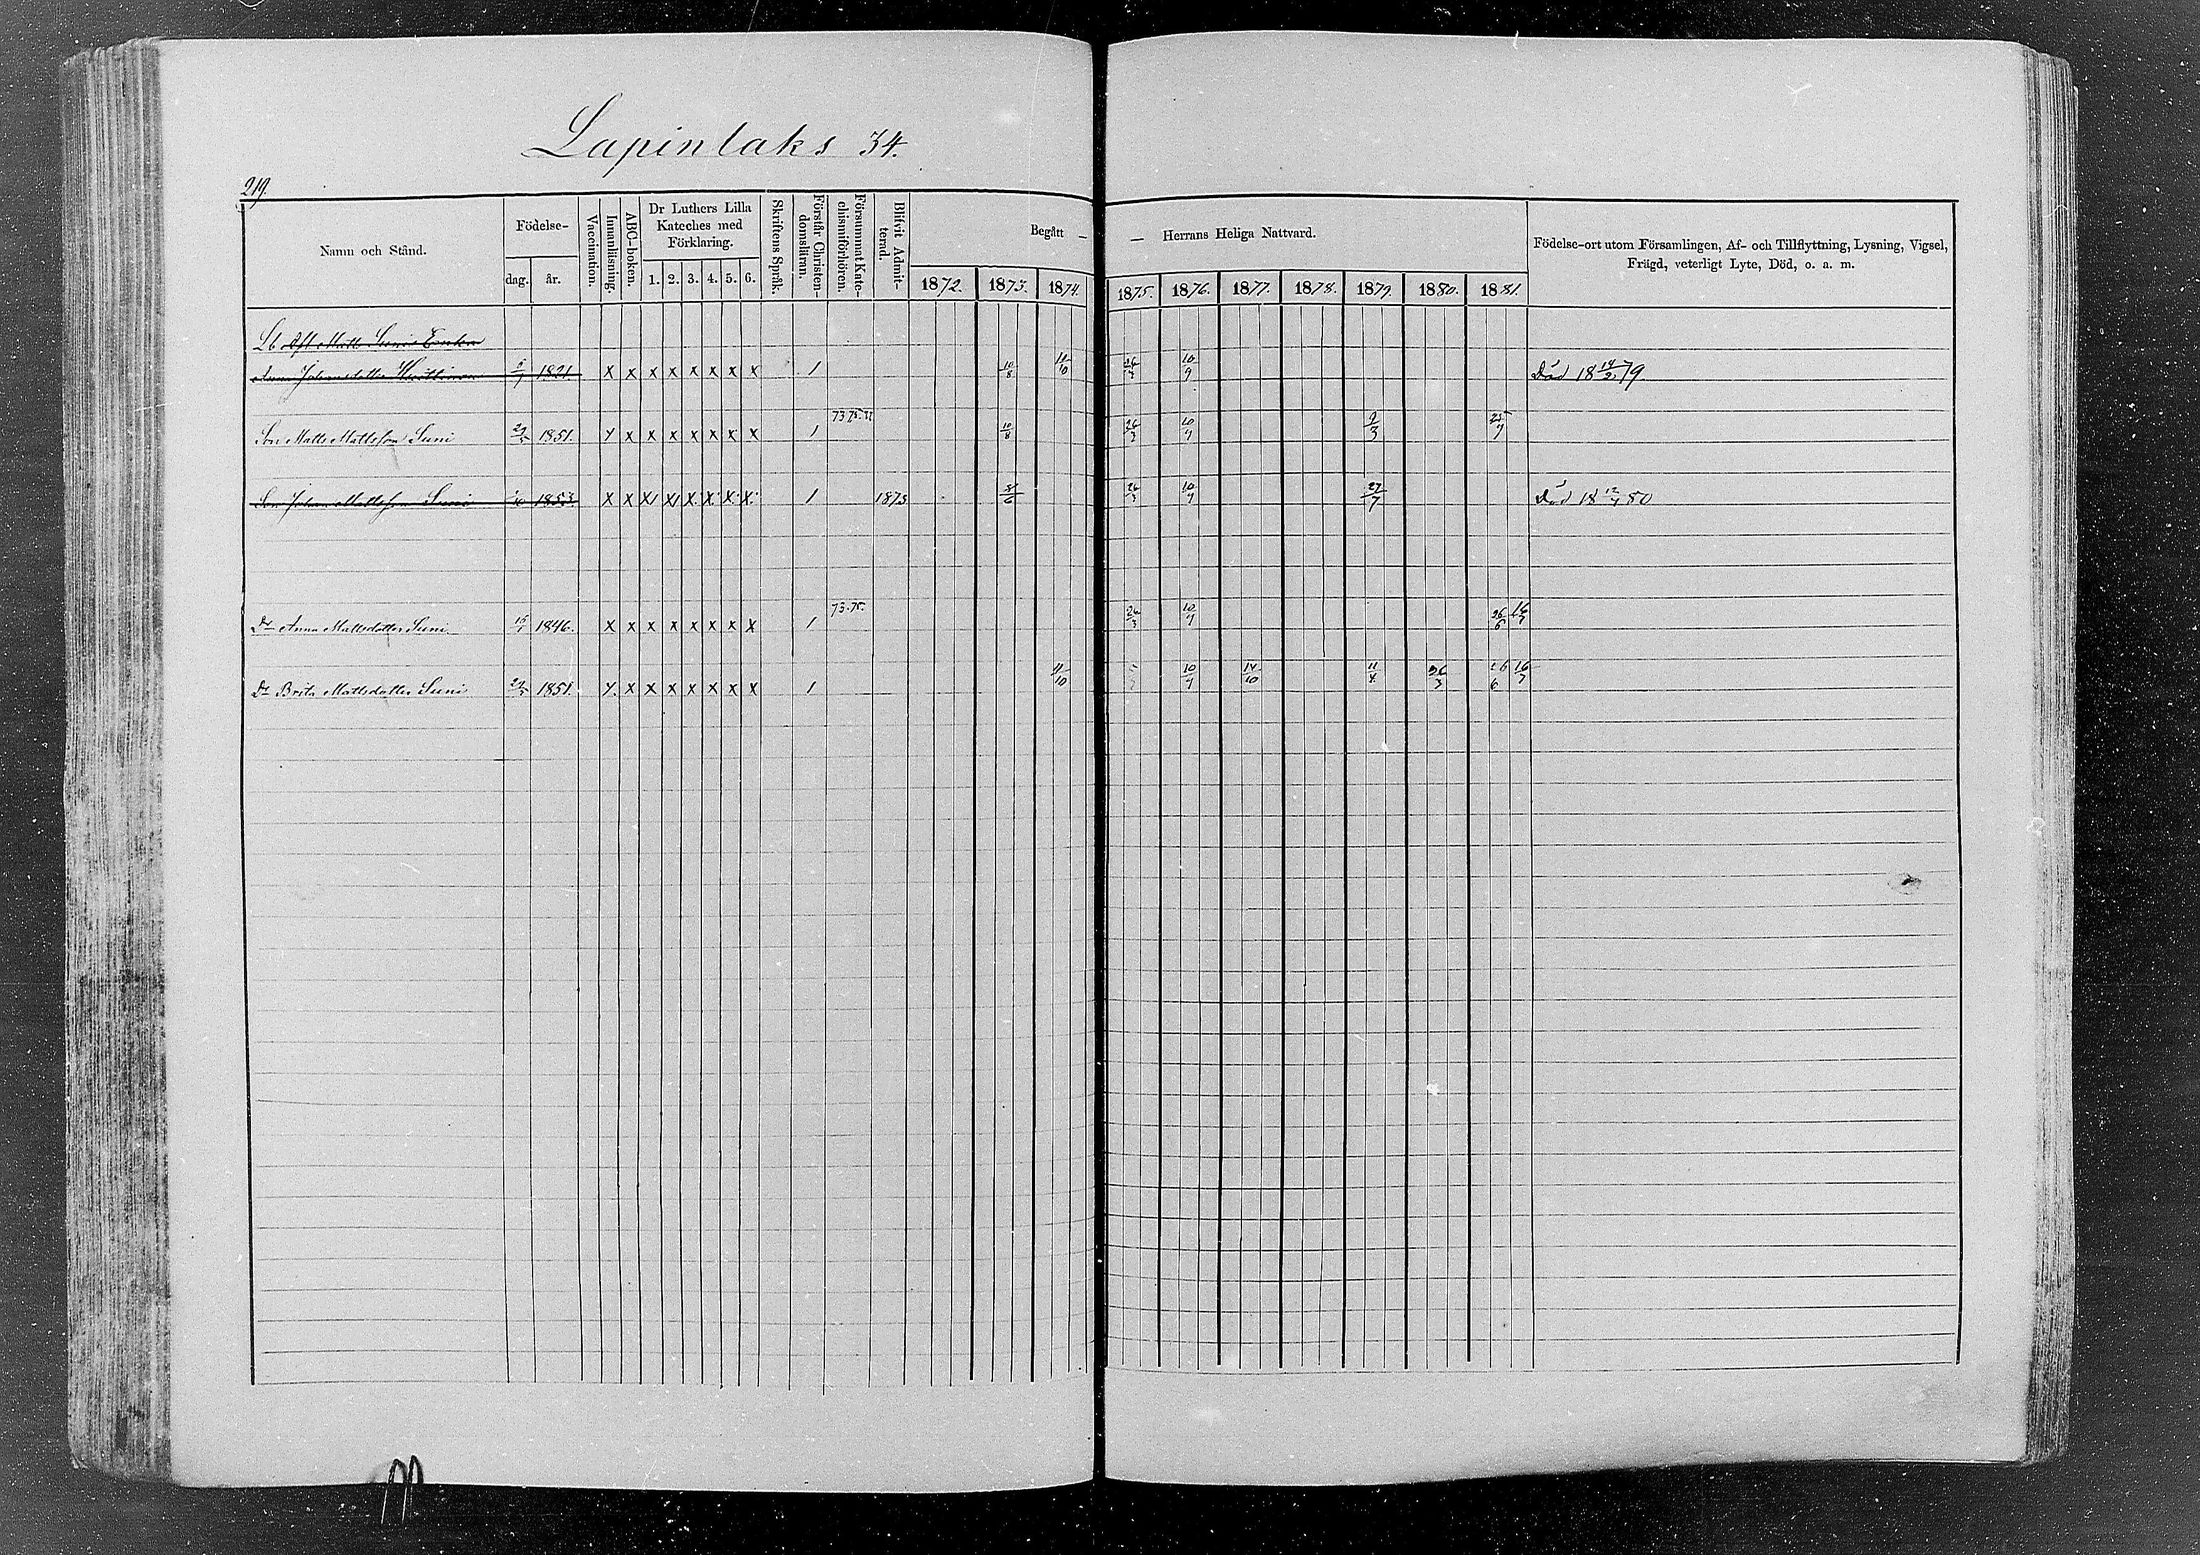 Lapinlaks 34.
219.
Namn och Stånd.
Födelse-
dag. år.
Vaccination.
Innanläsning.
ABC-boken.
Dr Luthers Lilla
Kateches med
Förklaring.
1. 2. 3. 4. 5. 6.
Skriftens Språk.
Förstår Christen-
domsläran.
Försummat Kate-
chismiförhören.
Blifvit Admit-
terad.
Begått —
1872. 1873. 1874.
— Herrans Heliga Nattvard.
1875. 1876. 1877. 1878. 1879. 1880. 1881.
Födelse-ort utom Församlingen, Af- och Tillflyttning, Lysning, Vigsel,
Frägd, veterligt Lyte, Död, o. a. m.
Lb Afl Matts Sunis Enka
Anna Johansdotter 1821. x x x x x x x x 1 10/8 11/10 26/3 10/9 Död 18 14/2 79.
73 75
Son Matts Mattsson Suni 29/5 1851. y x x x x x x x 1 10/8 26/3 10/9 9/3 25/7
Son Johan Mattsson Suni 1853. x x x x x x x x 1 1873 8/6 26/3 10/9 27/7 Död 18 12/4 80
73. 75.
Dr Anna Mattsdotter Suni 15/1 1846. x x x x x x x x 1 26/3 10/9 26/6 16/7
Dr Brita Mattsdotter Suni 29/5 1851. y x x x x x x x 1 11/10 10/9 14/10 11/4 26/3 26/6 16/7